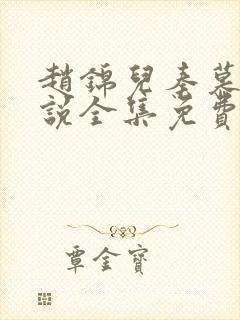 趙錦兒秦慕
說全集免費
覃金寶